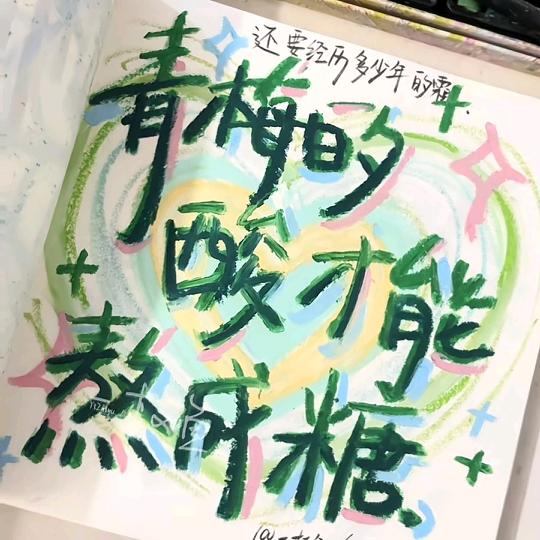 还要经历多少年的霜
青梅的
酸才能
熬成糖